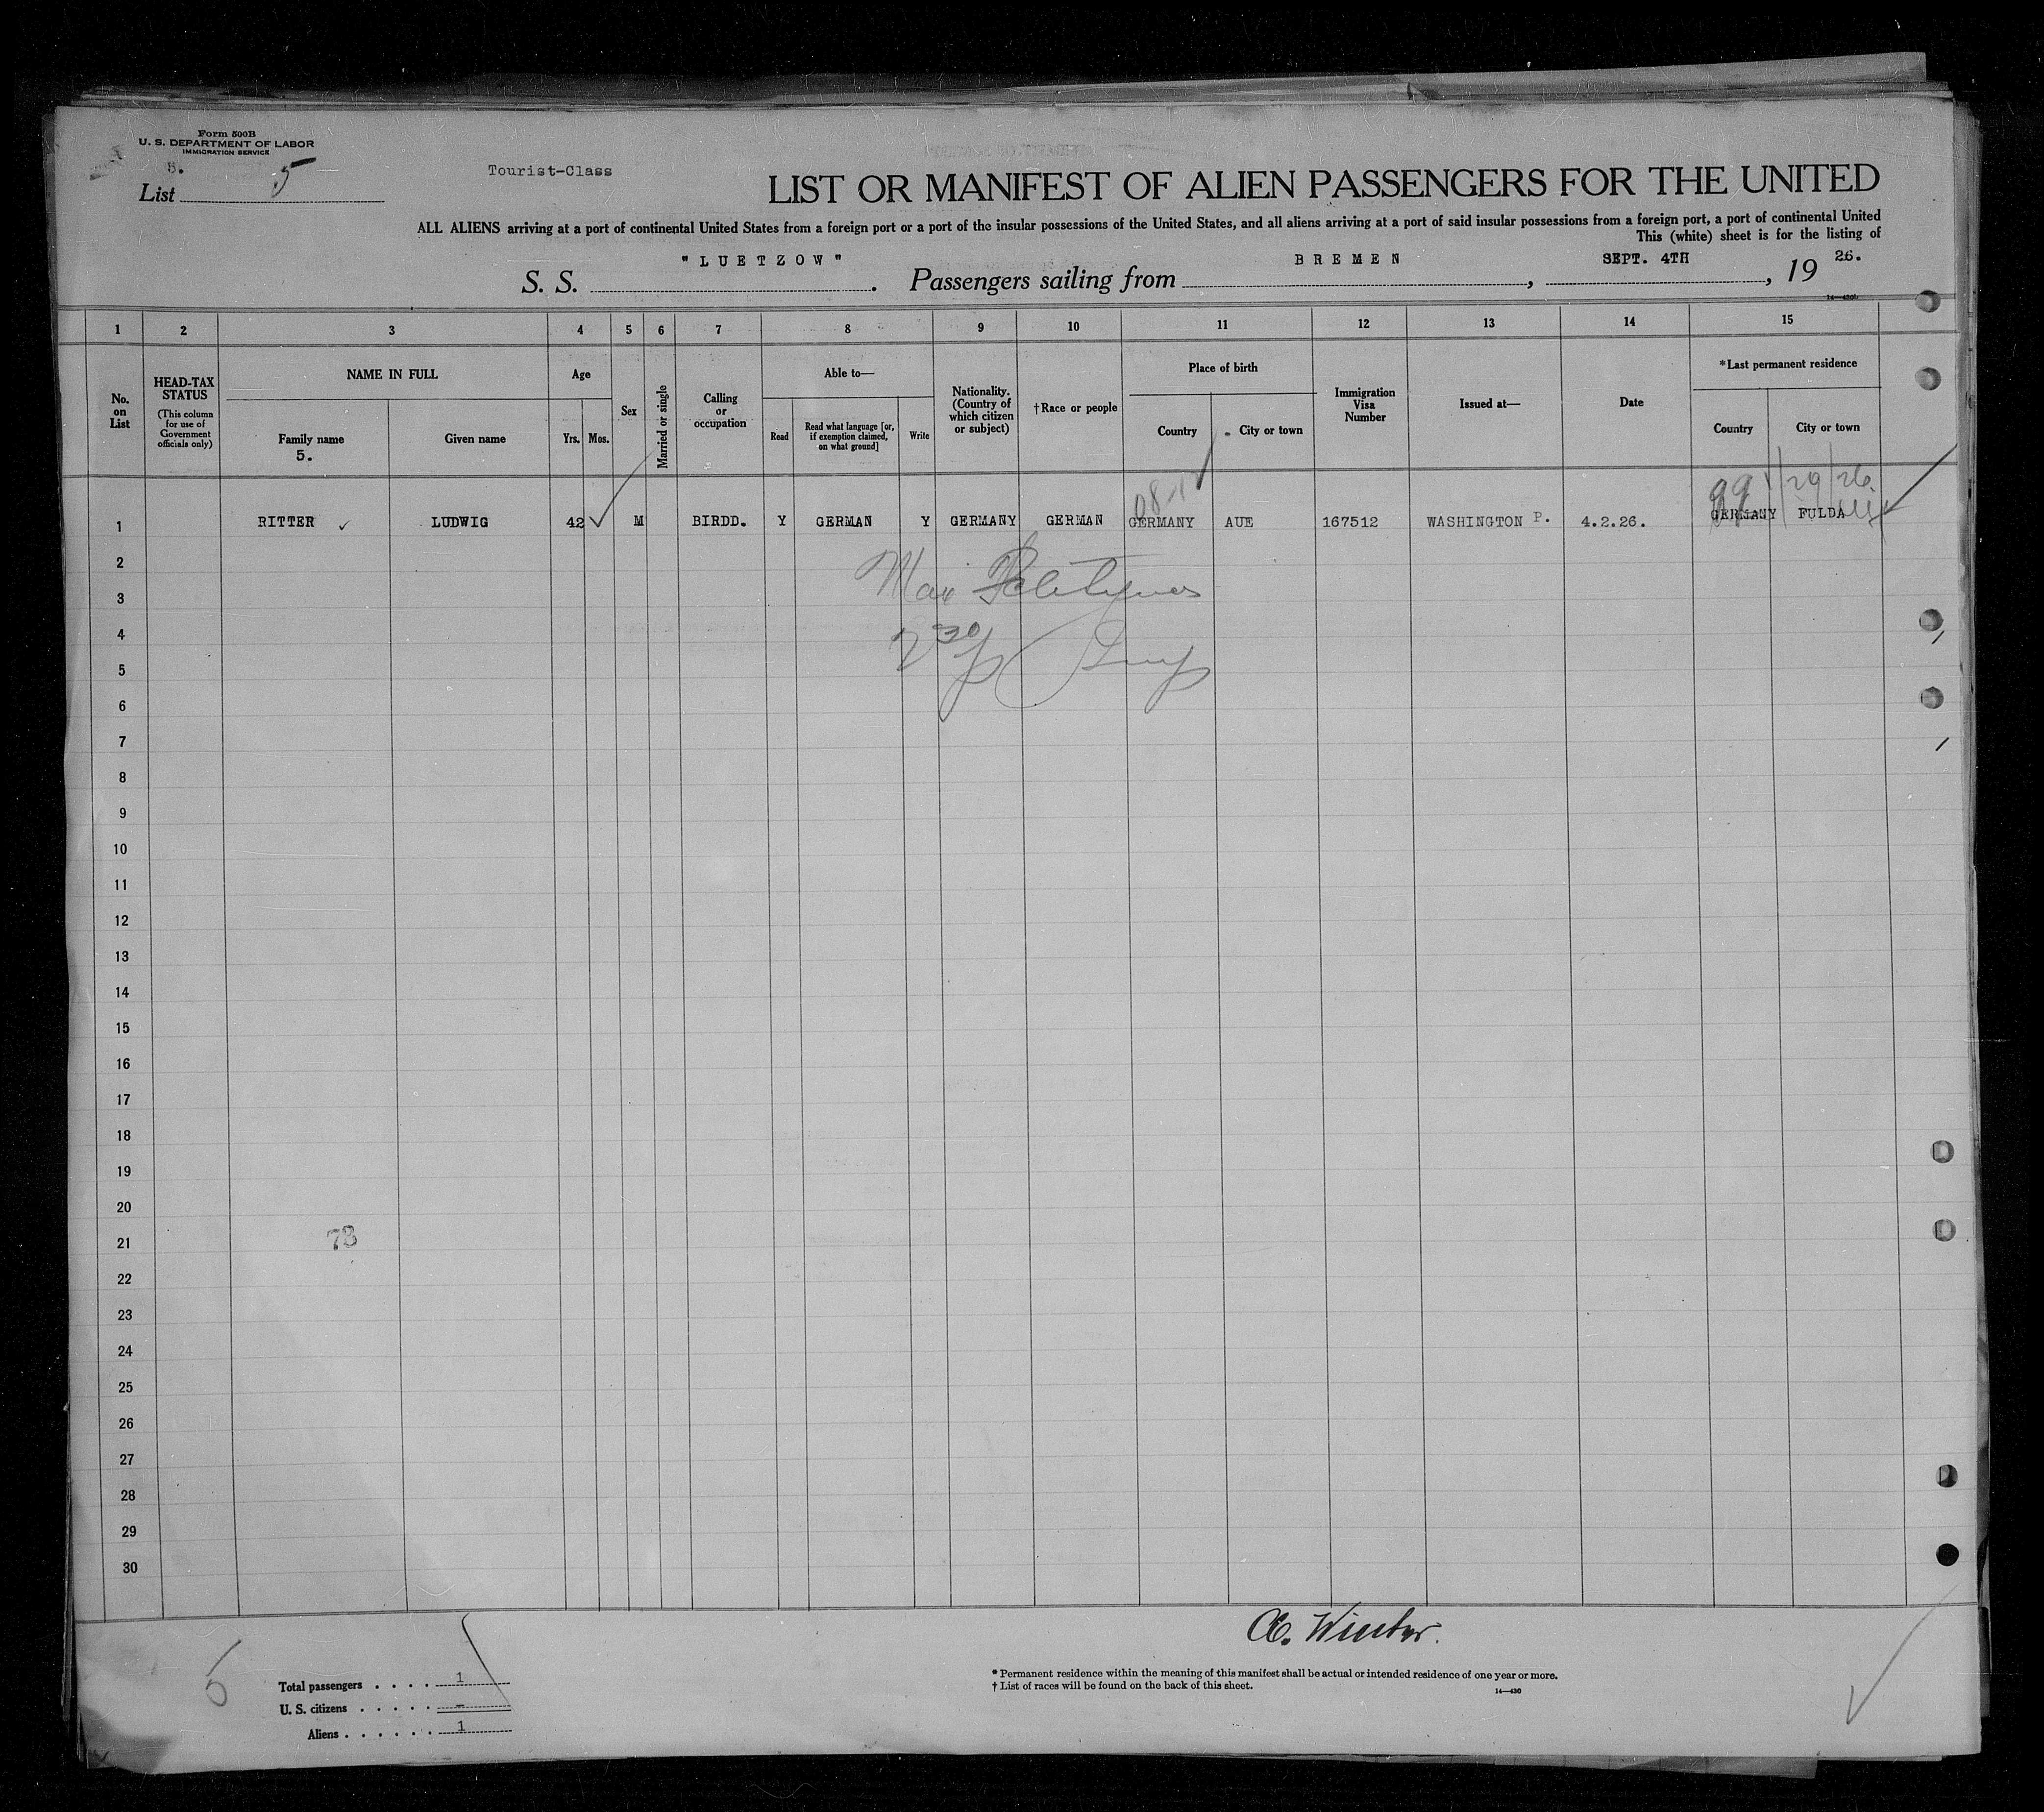 Form 500B
U. S. DEPARTMENT OF LABOR
IMMIGRATION SERVICE
5.
List 5
Tourist-Class
LIST OR MANIFEST OF ALIEN PASSENGERS FOR THE UNITED
ALL ALIENS arriving at a port of continental United States from a foreign port or a port of the insular possessions of the United States, and all aliens arriving at a port of said insular possessions from a foreign port, a port of continental United
This (white) sheet is for the listing of
S. S. "LUETZOW". Passengers sailing from BREMEN, SEPT. 4TH, 19 26.
1 2 3 4 5 6 7 8 9 10 11 12 13 14 15
No. on List
HEAD-TAX STATUS (This column for use of Government officials only)
NAME IN FULL
Family name
5.
Given name
Age
Yrs. Mos.
Sex
Married or single
Calling or occupation
Able to—
Read
Read what language [or, if exemption claimed, on what ground]
Write
Nationality. (Country of which citizen or subject)
†Race or people
Place of birth
Country
City or town
Immigration Visa Number
Issued at—
Date
*Last permanent residence
Country
City or town
1 RITTER LUDWIG 42 M BIRDD. Y GERMAN Y GERMANY GERMAN GERMANY AUE 167512 WASHINGTON P. 4.2.26. GERMANY FULDA
2
3
4
5
6
7
8
9
10
11
12
13
14
15
16
17
18
19
20
21
73
22
23
24
25
26
27
28
29
30
Winter.
5
Total passengers . . . . 1
U. S. citizens . . . . . –
Aliens . . . . . . 1
* Permanent residence within the meaning of this manifest shall be actual or intended residence of one year or more.
† List of races will be found on the back of this sheet.
14—430